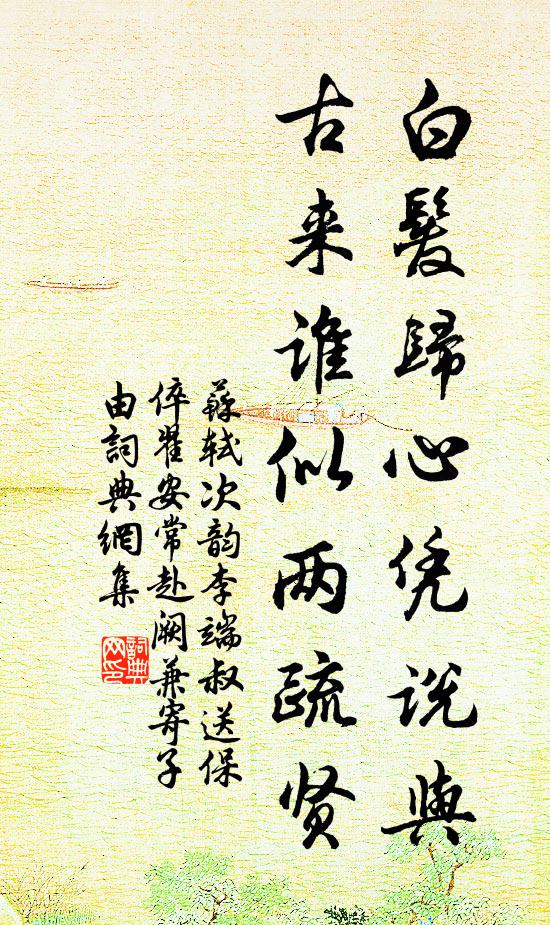 白髮歸心凭说與
古来谁似两疏贤
蘇轼次韵李端叔送保
倅翟安常赴阙兼寄子
由詞典網集
詞典
网印